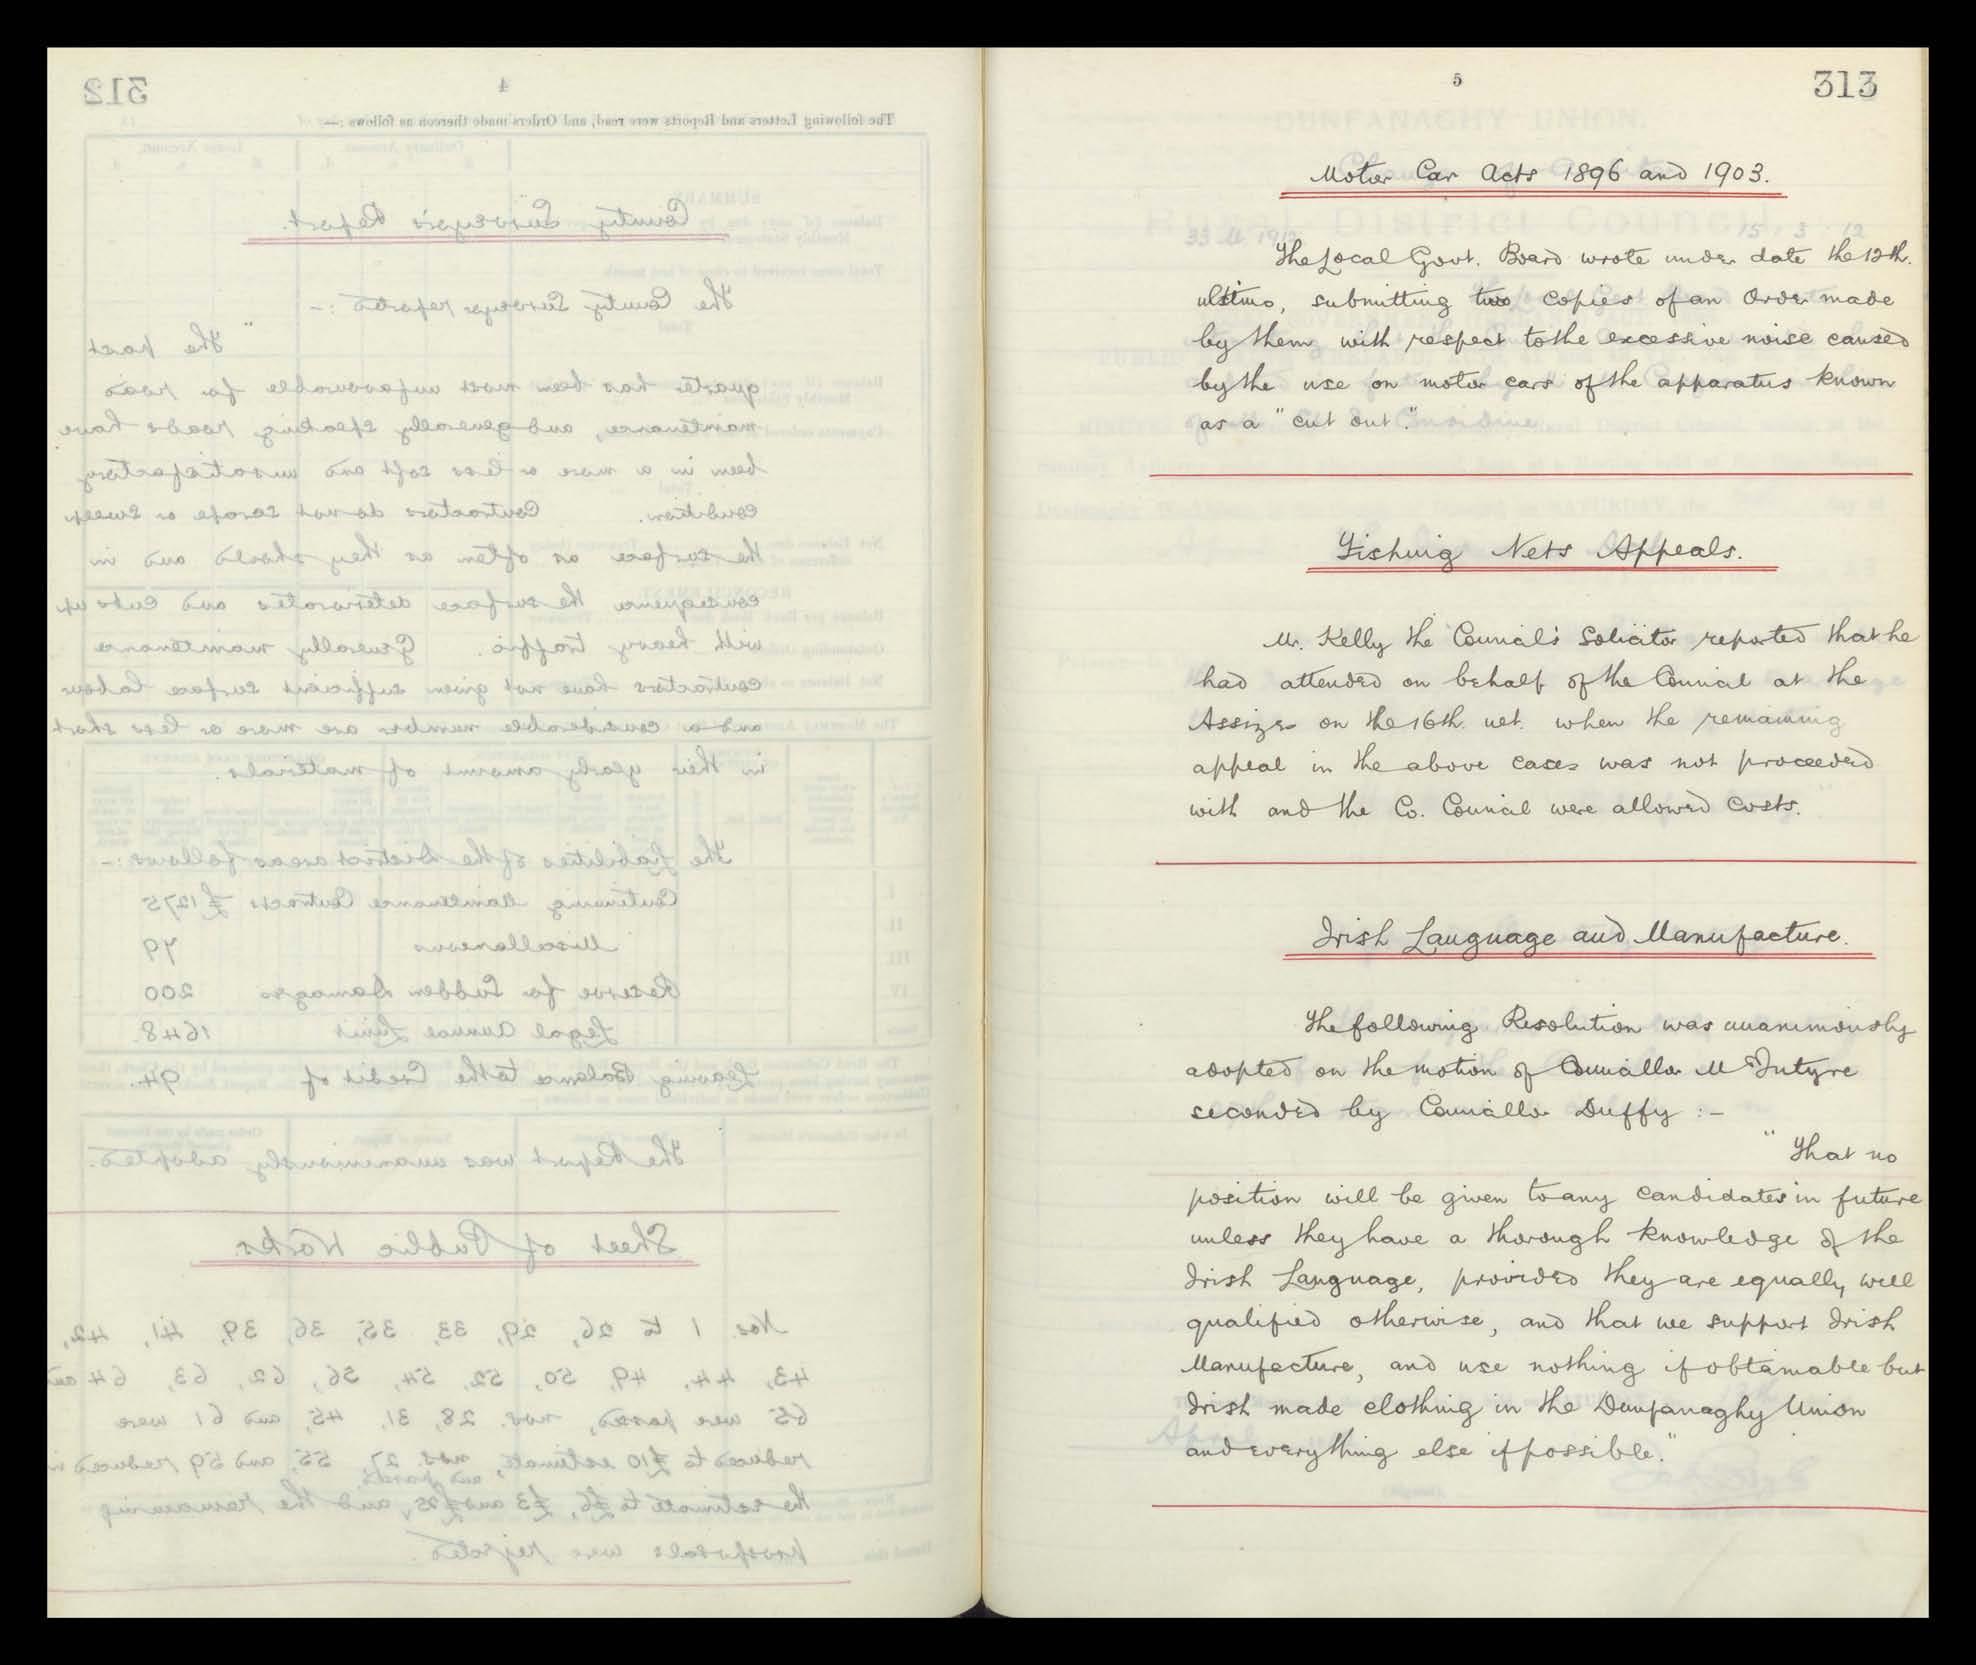 312
4
The following Letters and Reports were read, and Orders made thereon as follows :—
County Surveyor's Report.
The County Surveyor reported :-
"The past
quarter has been most unfavourable for road
maintenance, and generally speaking roads have
been in a more or less soft and unsatisfactory
condition. Contractors do not scrape or sweep
the surface as often as they should and in
consequence the surface deteriorates and cuts up
with heavy traffic. Generally maintenance
contractors have not given sufficient surface labour
and a considerable number are more or less short
in their yearly amount of materials.
The Liabilities of the District are as follows :-
Continuing Maintenance Contracts £1275
Miscellaneous 79
Reserve for Sudden Damages 200
Legal Annual Limit 1648.
Leaving Balance to the Credit of 94.
The Report was unanimously adopted.
Sheet of Public Works.
Nos. 1 to 26, 29, 33, 35, 36, 39, 41, 42,
43, 44, 49, 50, 52, 54, 56, 62, 63, 64 and
65 were passed, nos. 28, 31, 45, and 61 were
reduced to £10 estimate, nos. 27, 55, and 59 reduced in
the estimate to £6, £3 and £25, and passed, and the remaining
proposals were rejected.
5
313
Motor Car Acts 1896 and 1903.
The Local Govt. Board wrote under date the 12th.
ultimo, submitting two copies of an Order made
by them with respect to the excessive noise caused
by the use on motor cars of the apparatus known
as a "cut out".
Fishing Nets Appeals.
Mr. Kelly the Council's Solicitor reported that he
had attended on behalf of the Council at the
Assizes on the 16th. ult. when the remaining
appeal in the above cases was not proceeded
with and the Co. Council were allowed costs.
Irish Language and Manufacture.
The following Resolution was unanimously
adopted on the motion of Councillor McIntyre
seconded by Councillor Duffy :-
"That no
position will be given to any candidates in future
unless they have a thorough knowledge of the
Irish Language, provided they are equally well
qualified otherwise, and that we support Irish
Manufacture, and use nothing if obtainable but
Irish made clothing in the Dunfanaghy Union
and everything else if possible."